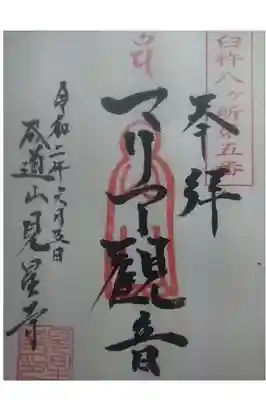 臼杵八ヶ所第五番
奉拝
マリア観音
令和二年六月五日
道山見星寺